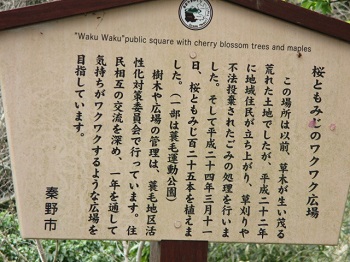 "Waku Waku"public square with cherry blossom trees and maples
桜ともみじのワクワク広場
この場所は以前、草木が生い茂る
荒れた土地でしたが、平成二十二年
に地域住民が立ち上がり、草刈りや
不法投棄されたごみの処理を行いま
した。そして平成二十四年三月十一
日、桜ともみじ百二十五本を植えま
した。(一部は蓑毛運動公園)
樹木や広場の管理は、蓑毛地区活
性化対策委員会で行っています。住
民相互の交流を深め、一年を通して
気持ちがワクワクするような広場を
目指しています。
秦野市